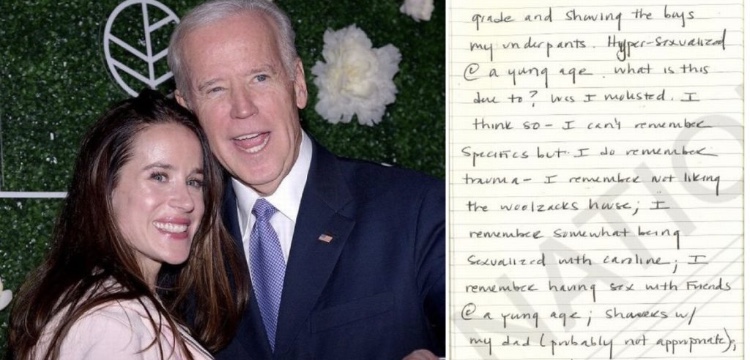 grade and showing the boys
my underpants. Hyper-sexualized
@ a yung age. what is this
due to? Was I molested. I
think so - I can't remember
specifics but I do remember
trauma - I remember not liking
the woolzacks house; I
remember somewhat being
sexualized with caroline; I
remember having sex with friends
@ a yung age; showers w/
my dad (probably not appropriate);
NATIO